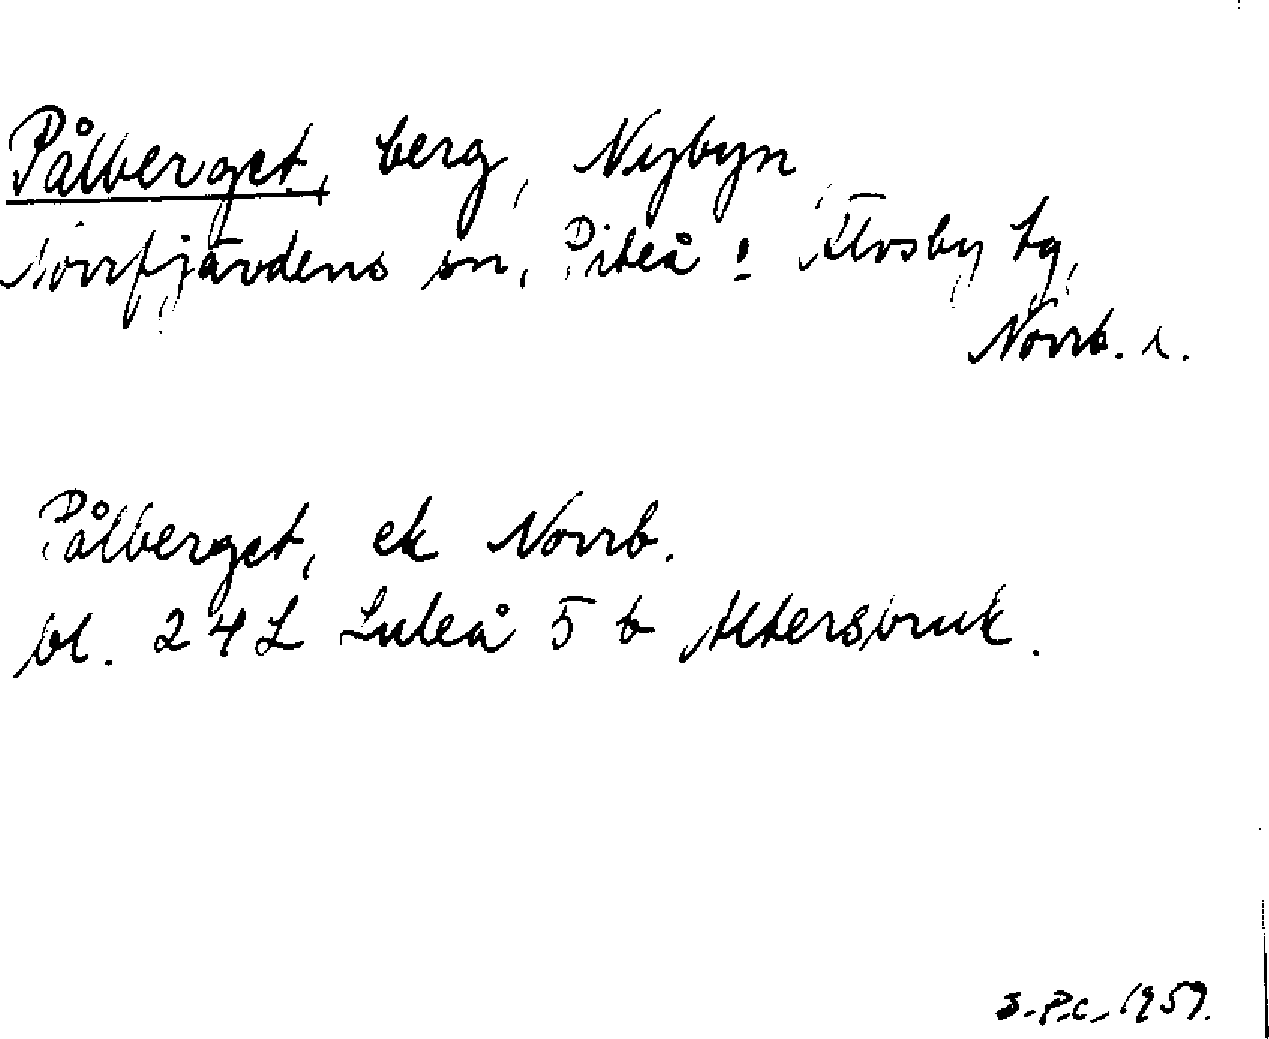 Pålberget, berg, Nybyn,
Norrfjärdens sn, Piteå o. Älvsby tg,
Norrb. l.
Pålberget, ek Norrb.
bl. 24L Luleå 5 b Altersbruk.
1959.